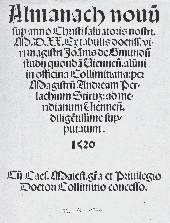 Almanach nouũ
sup anno Christi saluatoris nostri
M.D.XX. Ex tabulis doctiss. vi-
ri magistri Joãnis de Gmunden
studij quondã Viennen̄. alũni
in officina Collimitiana: per
Magistrũ Andream Per-
lachium Stirũ: ad me-
ridianum Vienneñ.
diligẽtissime sup-
putatum.
1520
Cũ Caes. Maiest. grã et Priuilegio
Doctori Collimitio concesso.